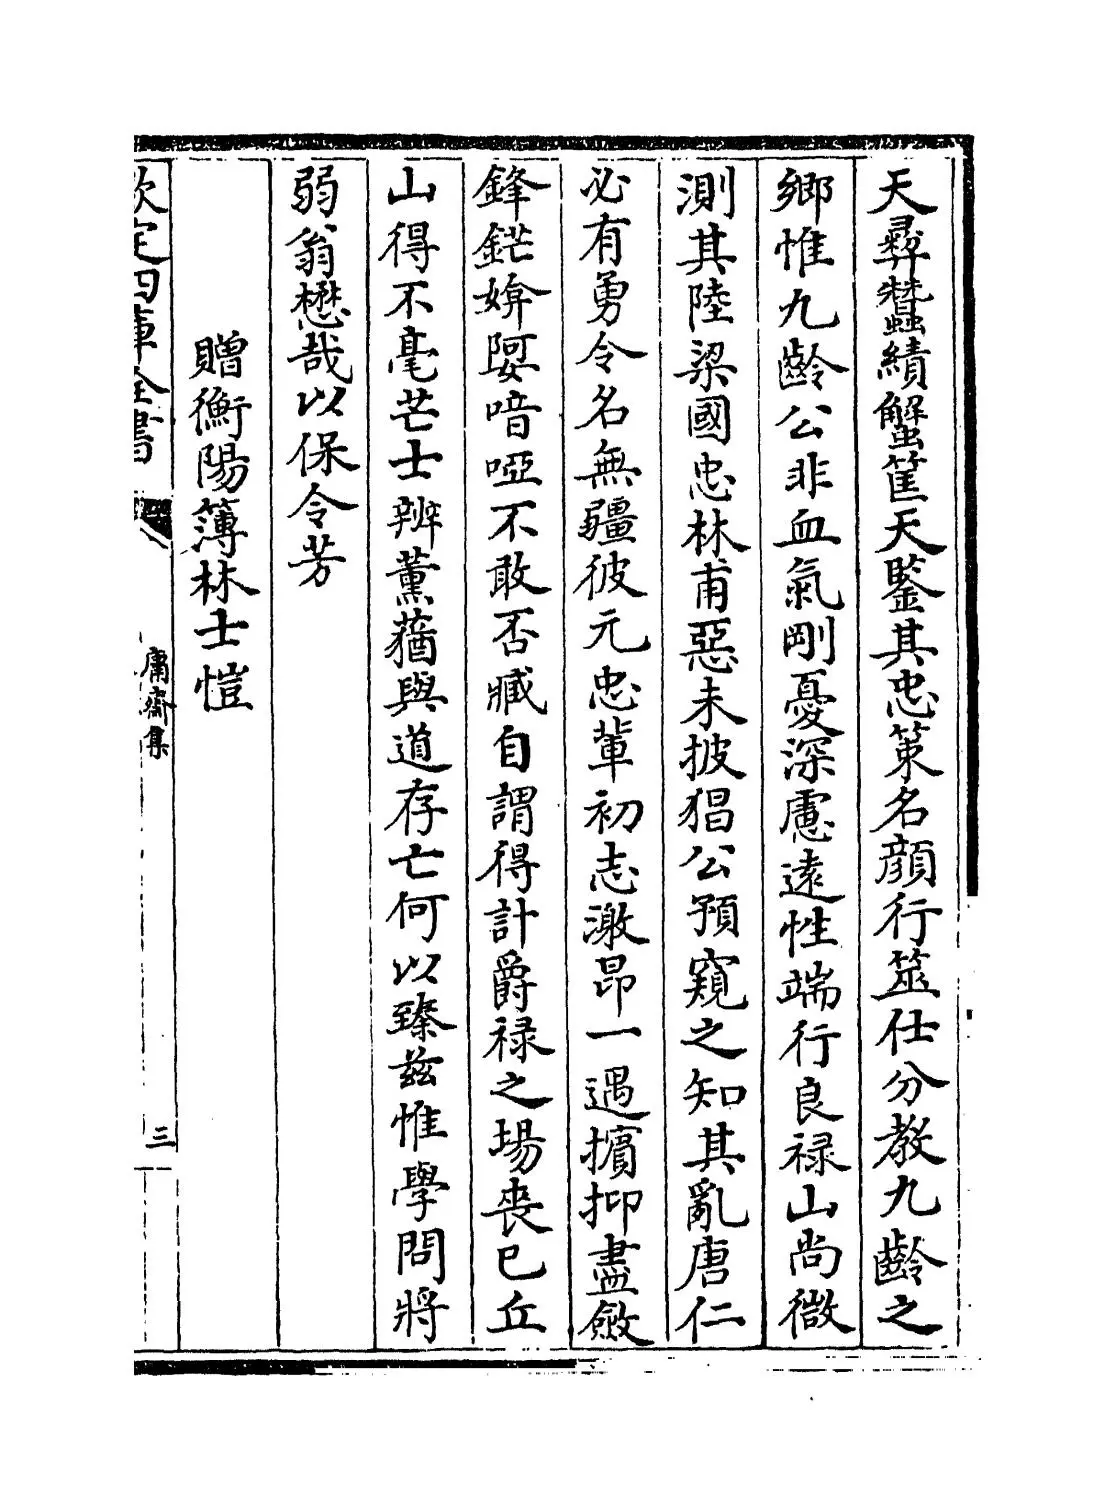 天彛蠶績蟹筐天鑒其忠策名顔行筮仕分教九齡之
鄉惟九齡公非血氣剛憂深慮逺性端行良禄山尚微
測其陸梁國忠林甫惡未披猖公預窺之知其亂唐仁
必有勇令名無疆彼元忠輩初志激昂一遇擯抑盡斂
鋒鋩媕婀喑啞不敢否臧自謂得計爵禄之場喪已丘
山得不毫芒士辨薰蕕與道存亡何以臻兹惟學問將
弱翁懋哉以保令芳
贈衡陽簿林士愷
欽定四庫全書
庸齋集
三